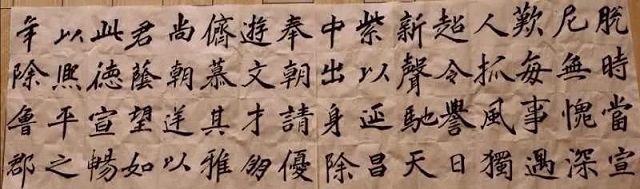 脫時當宣
尼無愧深
歎每事過
人孤風獨
超令譽日
新聲馳天
紫以延昌
中出身除
奉朝請優
遊文才多
儕慕其雅
尚朝廷以
君蔭望如
此德宣暢
以熙平之
年除魯郡